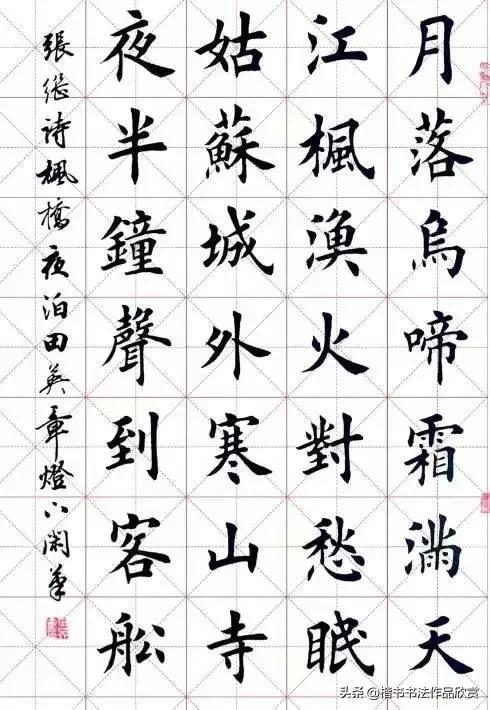 月落烏啼霜滿天
江楓漁火對愁眠
姑蘇城外寒山寺
夜半鐘聲到客船
張继詩楓橋夜泊田英章燈下閑筆
头条@楷书书法作品欣赏